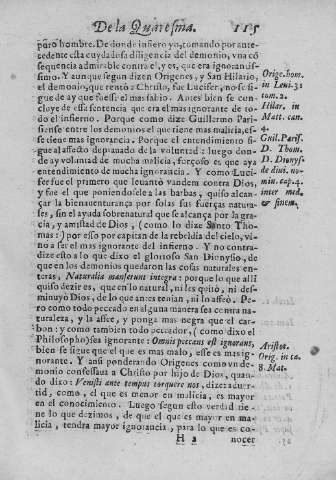 De la Quaresma. 115
puro hombre. De donde infiero yo, tomando por ante-
cedente esta cuydadosa diligencia del demonio, vna cõ
sequencia admirable contra el, y es, que era ignorantis-
simo. Y aunque segun dizen Origenes, y San Hilario,
el demonio, que tentò a Christo, fue Lucifer, no se si-
gue de ay que fuesse el mas sabio. Antes bien se con-
cluye de essa sentencia que era el mas ignorante de to-
do el infierno. Porque como dize Guillermo Pari-
siense entre los demonios el que tiene mas malicia, es-
se tiene mas ignorancia. Porque el entendimiento si-
gue al afecto deprauado de la voluntad: luego don-
de ay voluntad de mucha malicia, forçoso es que aya
entendimiento de mucha ignorancia. Y como Luci-
fer fue el primero que leuantò vandem contra Dios,
y fue el que poniendosele a las barbas, quiso alcan-
çar la bienauenturança por solas sus fuerças natura-
les, sin el ayuda sobrenatural que se alcança por la gra-
cia, y amistad de Dios, (como lo dize Santo Tho-
mas:) por esso por capitan de la rebeldia del cielo, vi-
no a ser el mas ignorante del infierno. Y no contra-
dize esto a lo que dixo el glorioso San Dionysio, de
que en los demonios quedaron las cosas naturales en-
teras, Naturalia manserunt integra: porque lo que alli
quiso dezir es, que en lo natural, ni les quitò, ni des-
minuyò Dios, de lo que antes tenian, ni lo afeò. Pe-
ro como todo peccado en alguna manera sea contra na-
turaleza, y la afee, y ponga mas negra que el car-
bon: y como tambien todo peccador, (como dixo el
Philosopho) sea ignorante: Omnis peccans est ignorans,
bien se sigue que el que es mas malo, esse es mas ig-
norante. Y assi ponderando Origenes como vn de-
monio confessaua a Christo por hijo de Dios, quan-
do dixo: Venisti ante tempus torquere nos, dize aduer-
tid, como, el que es menor en malicia, es mayor
en el conocimiento. Luego segun esto verdad tie-
ne lo que dezimos, de que el que es mayor en ma-
licia, tendra mayor ignorancia, para lo que es co-
H 2 nocer
Orige. hom.
in Leui. 31
tom. 2.
Hilar. in
Matt. can.
4.
Guil. Paris.
D. Thom.
D. Dionys.
de diui. no-
min. cap. 4.
inter med.
& finem.
Aristot.
Orig. in ca.
8. Mat.